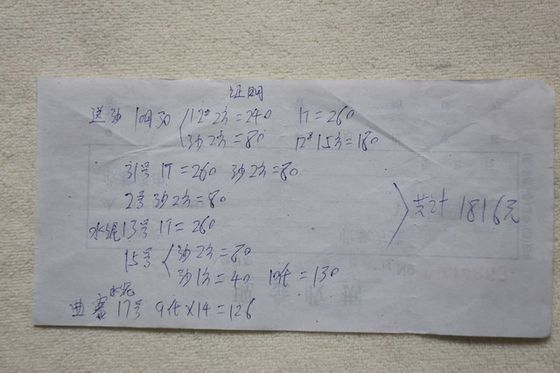 证明
送沙 10月30 12#2方=240 1T=260
沙2方=80 12#15方=180
31号1T=260 沙2方=80
2号沙2方=80
水泥13号1T=260
共计1816元
15号 沙2方=80
沙1方=40 10代=130
水泥
17号 9代×14=126